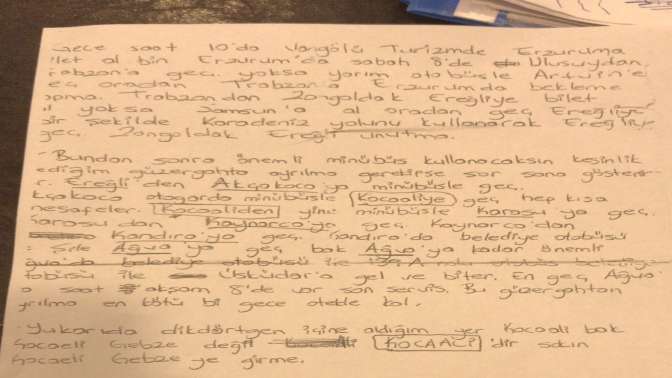 Gece saat 10'da Vangölü Turizmde Erzuruma
ilet al bin Erzurum'da sabah 8'de Ulusuydan
rabzon'a geç. yoksa yarım otobüsle Artvin'e
eç oradan Trabzon'a Erzurumda bekleme
apma. Trabzondan Zongoldak Ereğliye bilet
yoksa Samsun'a al oradan geç Ereğliye
bir şekilde Karadeniz yolunu kullanarak Ereğliye
geç. Zongoldak Ereğli unutma.
- Bundan sonra önemli minübüs kullanacaksın kesinlik
ediğim güzergahta ayrılma gerekirse sor sana göster
r. Ereğli'den Akçakoca'ya minübüsle geç.
kçakoca otogarda minübüsle Kocaaliye geç hep kısa
mesafeler. Kocaaliden yine minübüsle Karasu'ya geç.
Karasu'dan Kaynarca'ya geç. Kaynarca'dan
Kandıra'ya geç. Kandıra'da belediye otobüsü
ile Şile Ağva'ya geç bak Ağva'ya kadar önemli
ğva'da belediye otobüsü ile
tobüsü ile Üsküdar'a gel ve biter. En geç Ağva
a saat akşam 8'de var son servis. Bu güzergahtan
yrılma en kötü bi gece otelde kal.
- Yukarıda dikdörtgen içine aldığım yer Kocaali bak
Kocaeli Gebze değil KOCAALİ'dir sakın
Kocaeli Gebze ye girme.